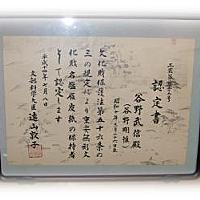 認定書
谷野武信殿
(谷野剛惟)
文化財保護法第五十六条の
三の規定により重要無形文
化財名塩雁皮紙の保持者
として認定します
平成十四年七月八日
文部科学大臣 遠山敦子